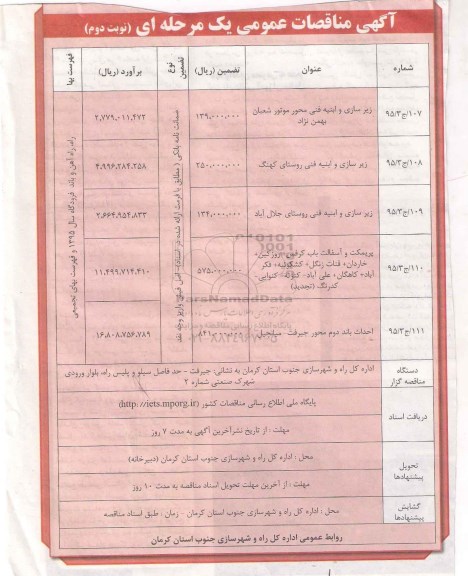 آگهی مناقصات عمومی یک مرحله ای (نوبت دوم)
شماره
عنوان
تضمین (ریال)
نوع تضمین
برآورد (ریال)
فهرست بها
۹۵/۳/ج/۱۰۷
زیر سازی و ابنیه فنی محور موتور شعبان
بهمن نژاد
۱۳۹,۰۰۰,۰۰۰
۲,۷۷۹,۰۱۱,۴۷۲
۹۵/۳/ج/۱۰۸
زیر سازی و ابنیه فنی روستای کهنگ
۲۵۰,۰۰۰,۰۰۰
۴,۹۹۶,۲۸۴,۲۵۸
۹۵/۳/ج/۱۰۹
زیر سازی و ابنیه فنی روستای جلال آباد
۱۳۴,۰۰۰,۰۰۰
۲,۶۶۴,۹۵۴,۸۳۳
۹۵/۳/ج/۱۱۰
پریمکت و آسفالت باب
خاردان+ قنات زنگل+
آباد+ کاهکان+ علی آباد-
(تجدید)
۵۷۵,۰۰۰,۰۰۰
۱۱,۴۹۹,۷۱۴,۴۱۰
۹۵/۳/ج/۱۱۱
احداث باند دوم محور جیرفت -
۱۶,۸۰۸,۷۵۶,۷۸۹
ضمانت نامه بانکی ( مطابق با فرمت ارائه شده در اسناد)- اصل فیش واریز وجه نقد
راه، راه آهن و باند فرودگاه سال ۱۳۹۵ و فهرست بهای تجمیعی
دستگاه
مناقصه گزار
اداره کل راه و شهرسازی جنوب استان کرمان به نشانی: جیرفت - حد فاصل سیلو و پلیس راه، بلوار ورودی
شهرک صنعتی شماره ۲
دریافت اسناد
پایگاه ملی اطلاع رسانی مناقصات کشور (http://iets.mporg.ir)
مهلت : از تاریخ نشر آخرین آگهی به مدت ۷ روز
تحویل
پیشنهادها
محل : اداره کل راه و شهرسازی جنوب استان کرمان (دبیرخانه)
مهلت : از آخرین مهلت تحویل اسناد مناقصه به مدت ۱۰ روز
گشایش
پیشنهادها
محل : اداره کل راه و شهرسازی جنوب استان کرمان - زمان : طبق اسناد مناقصه
روابط عمومی اداره کل راه و شهرسازی جنوب استان کرمان
ParsNamadData